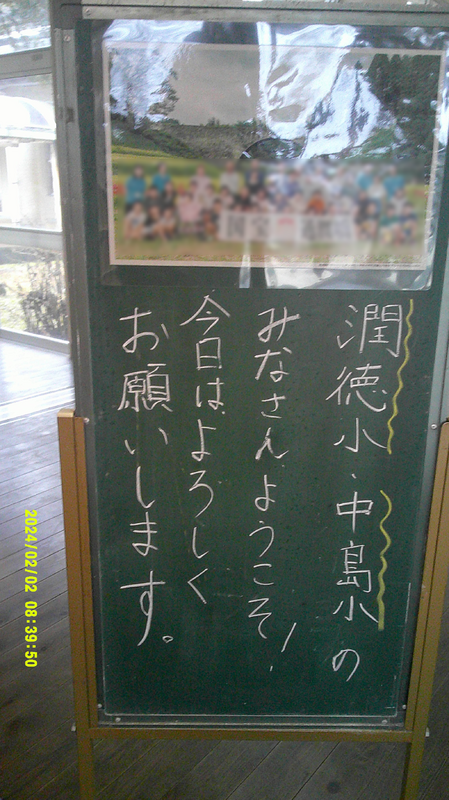 潤徳小・中島小の
みなさんようこそ!
今日はよろしく
お願いします。
2024/02/02 08:39:50